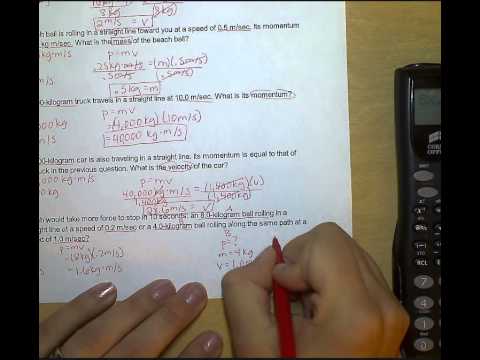 (8kg) (8kg)
2m/s = v
ch ball is rolling in a straight line toward you at a speed of 0.5 m/sec. Its momentum
kg m/sec. What is the mass of the beach ball?
kg·m/s p=mv
.25kg·m/s = (m)(.5m/s)
.5m/s (.5m/s)
.5kg=m
0-kilogram truck travels in a straight line at 10.0 m/sec. What is its momentum?
p=mv
=(4,000kg)(10m/s)
=40000 kg·m/s
0-kilogram car is also traveling in a straight line. Its momentum is equal to that of
uck in the previous question. What is the velocity of the car?
p=mv
40,000kg·m/s = (1,400kg)(v)
1,400kg (1,400kg)
28.6m/s = v
A
h would take more force to stop in 10 seconds: an 8.0-kilogram ball rolling in a
ght line at a speed of 0.2 m/sec or a 4.0-kilogram ball rolling along the same path at a
of 1.0 m/sec?
p=mv
(8kg)(.2m/s)
1.6kg·m/s
B
p=?
m=4kg
v=1.0